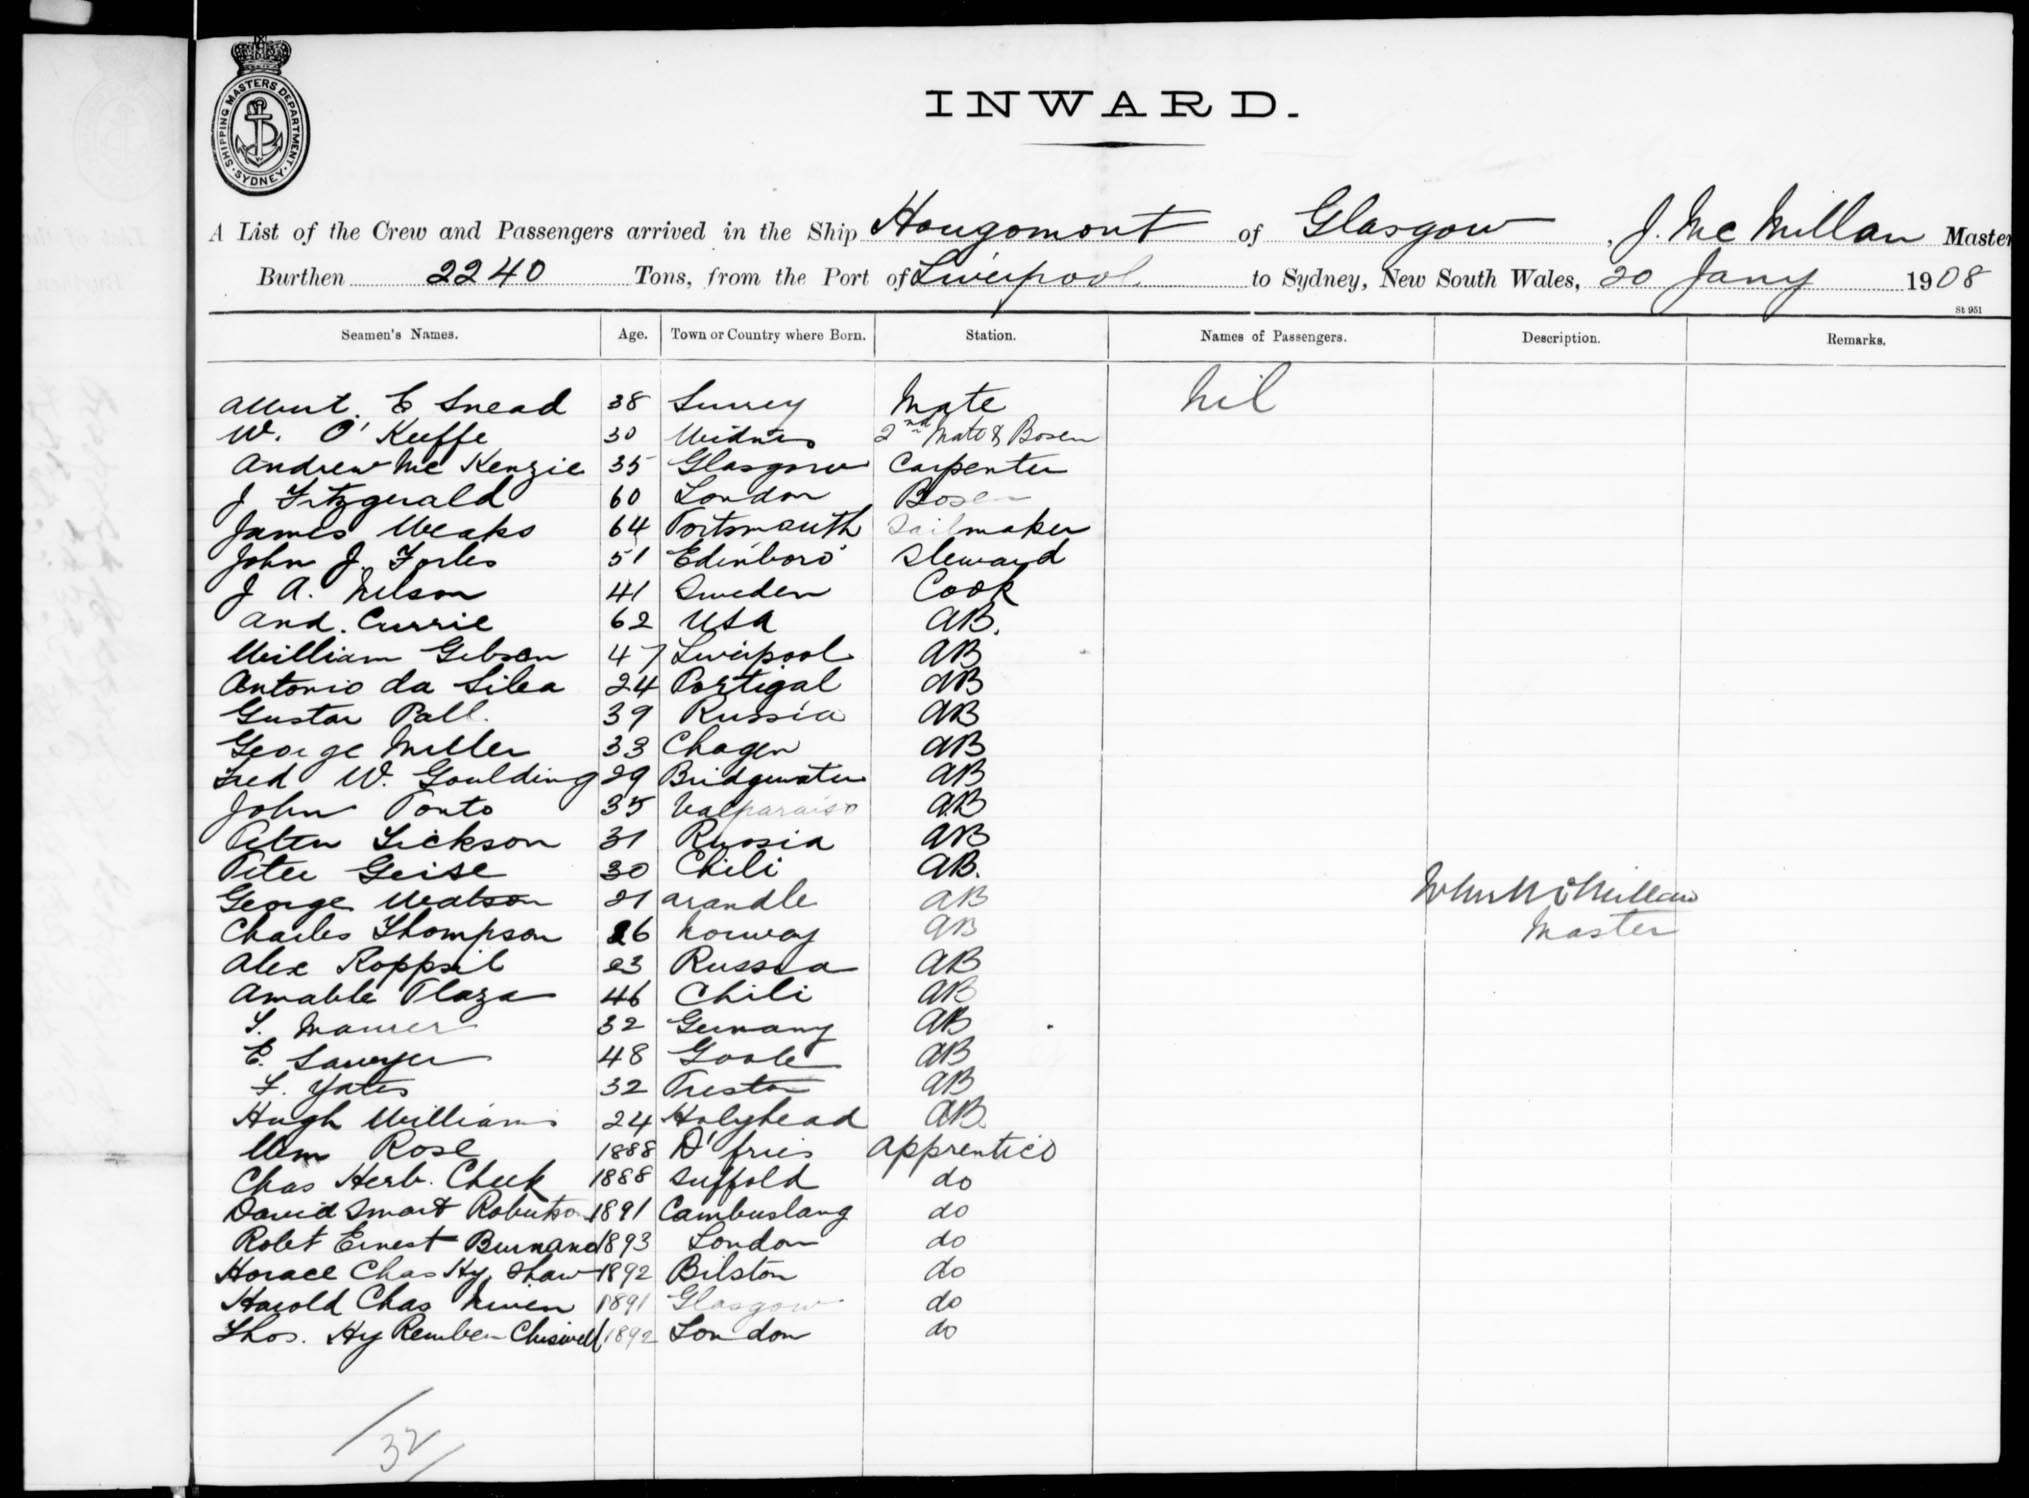 SHIPPING MASTERS DEPARTMENT
SYDNEY
INWARD.
A List of the Crew and Passengers arrived in the Ship Hougomont of Glasgow, J. McMillan Master
Burthen 2240 Tons, from the Port of Liverpool to Sydney, New South Wales, 20 Jany 1908
St 951
Seamen's Names. Age. Town or Country where Born. Station. Names of Passengers. Description. Remarks.
Albert. E Snead 38 Surrey Mate Nil
W. O'Keeffe 30 Widnes 2nd Mate & Bosen
Andrew McKenzie 35 Glasgow Carpenter
J Fitzgerald 60 London Bosen
James Weaks 64 Portsmouth Sailmaker
John J. Forbes 51 Edinboro' Steward
J A. Nelson 41 Sweden Cook
And. Currie 62 USA AB.
William Gibson 47 Liverpool AB
Antonio da Silva 24 Portigal AB
Gustav Pall. 39 Russia AB
George Miller 33 Chagen AB
Fred W. Goulding 29 Bridgewater AB
John Ponto 35 Valparaiso AB
Peter Sickson 31 Russia AB
Peter Geise 30 Chili AB.
George Watson 21 Arandle AB
Charles Thompson 26 Norway AB
John McMillan
Master
Alex Roppsil 23 Russia AB
Amable Plaza 46 Chili AB
S. Maurer 32 Germany AB
E. Sawyer 48 Goole AB
F. Yates 32 Preston AB
Hugh Williams 24 Holyhead AB
Wm Rose 1888 D'fries Apprentice
Chas Herb. Cheek 1888 Suffold do
David Smart Robertson 1891 Cambuslang do
Robt Ernest Burnand 1893 London do
Horace Chas Hy. Shaw 1892 Bilston do
Harold Chas Niven 1891 Glasgow do
Thos. Hy Reuben Chiswell 1892 London do
32